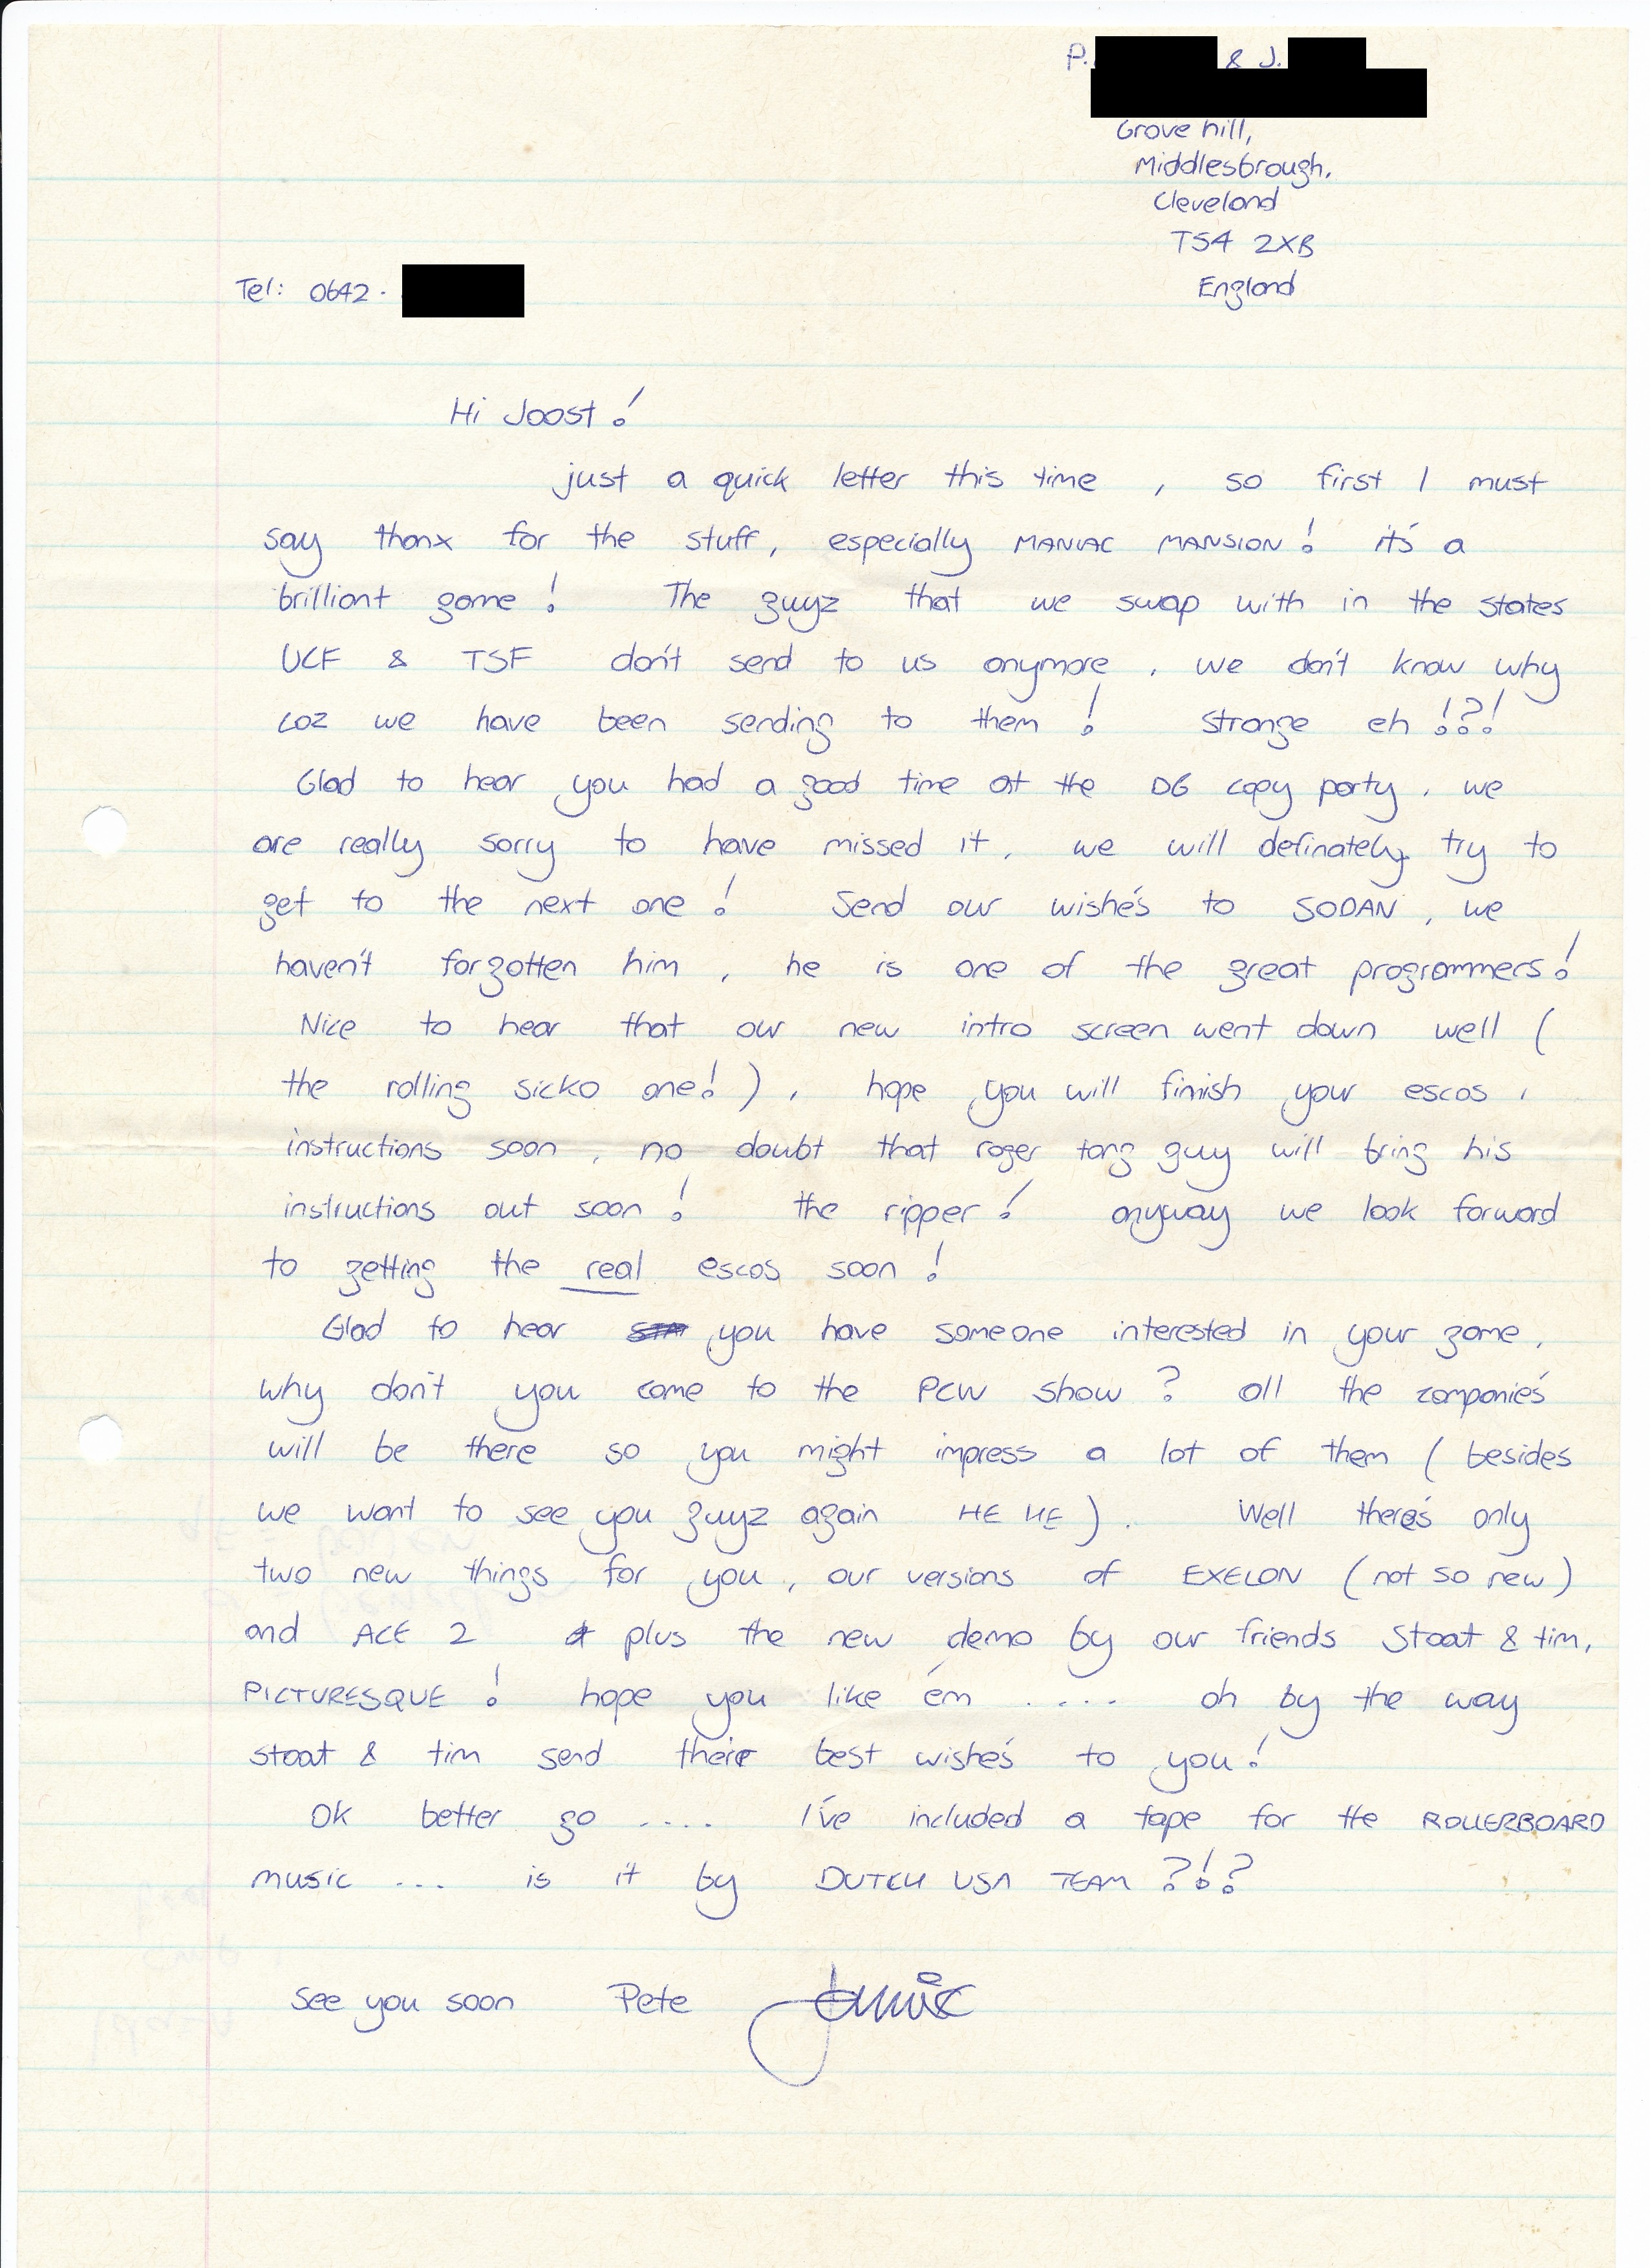 P. & J.
Grove hill,
Middlesbrough,
Cleveland
TS4 2XB
England
Tel: 0642 -
Hi Joost!
just a quick letter this time, so first I must
say thanx for the stuff, especially MANIAC MANSION! it's a
brilliant game! The guyz that we swap with in the states
UCF & TSF don't send to us anymore, we don't know why
coz we have been sending to them! Strange eh!?!
Glad to hear you had a good time at the DG copy party, we
are really sorry to have missed it, we will definately try to
get to the next one! Send our wishe's to SODAN, we
haven't forgotten him, he is one of the great programmers!
Nice to hear that our new intro screen went down well (
the rolling sicko one!), hope you will finish your escos,
instructions soon, no doubt that roger tong guy will bring his
instructions out soon! the ripper! anyway we look forward
to getting the real escos soon!
Glad to hear you have someone interested in your game,
why don't you come to the PCW show? all the companie's
will be there so you might impress a lot of them (besides
we want to see you guyz again HE HE). Well there's only
two new things for you, our versions of EXELON (not so new)
and ACE 2 plus the new demo by our friends Stoat & tim,
PICTURESQUE! hope you like 'em .... oh by the way
stoat & tim send their best wishe's to you!
OK better go .... I've included a tape for the ROLLERBOARD
music ... is it by DUTCH USA TEAM ?!?
See you soon Pete